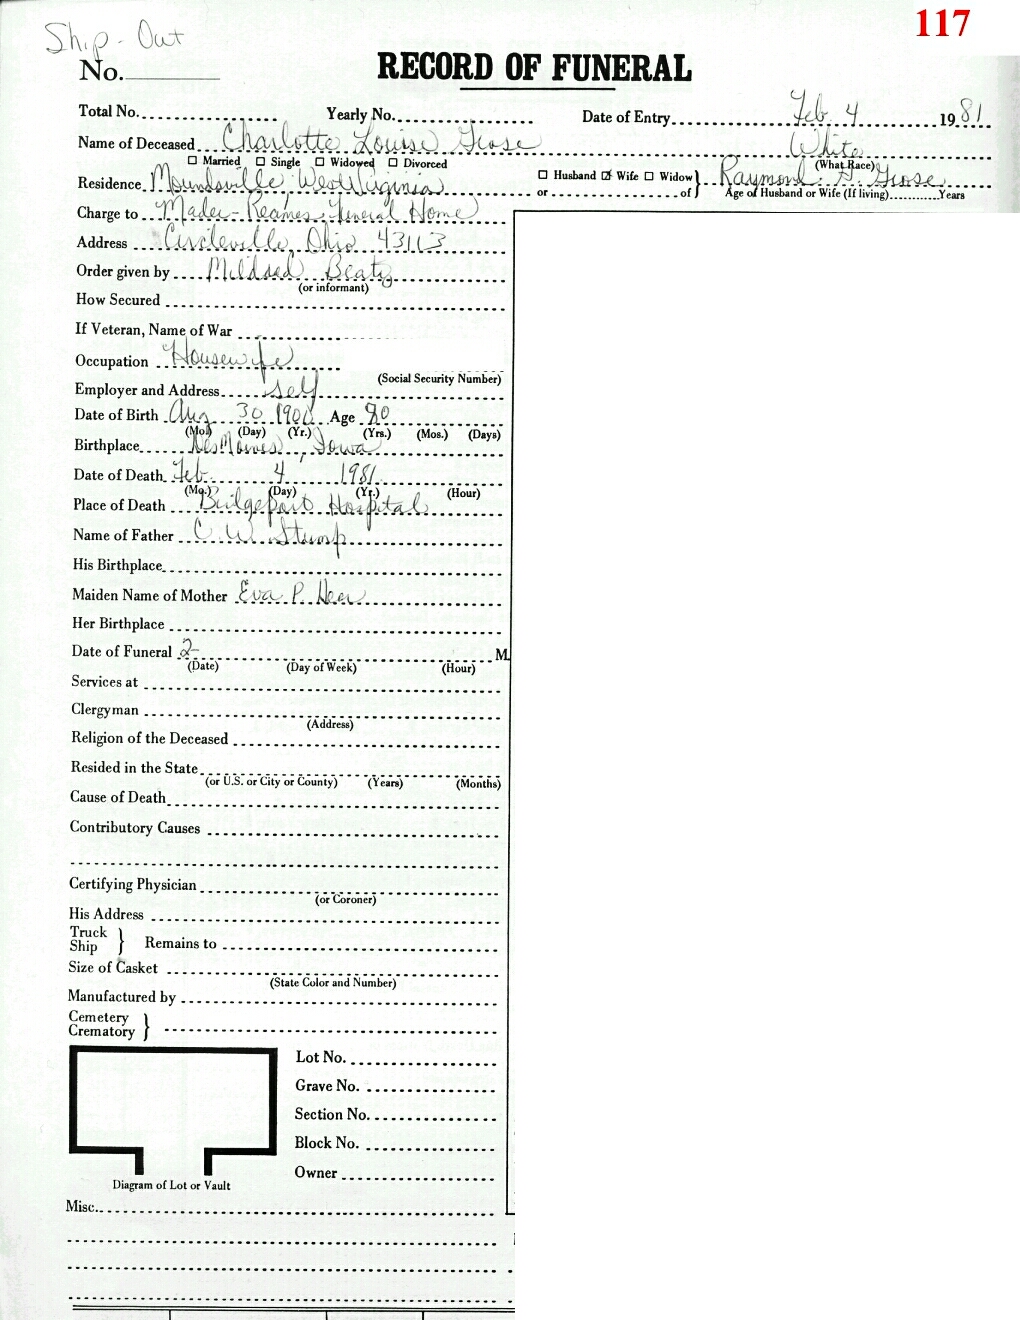 117
Ship-Out
No.
RECORD OF FUNERAL
Total No. Yearly No. Date of Entry Feb. 4 1981
Name of Deceased Charlotte Louise Grose White
☐ Married ☐ Single ☐ Widowed ☐ Divorced (What Race)
Residence Moundsville, West Virginia ☐ Husband ☑ Wife ☐ Widow } Raymond G. Grose
or of Age of Husband or Wife (If living) Years
Charge to Mader-Reames Funeral Home
Address Circleville, Ohio 43113
Order given by Mildred Beaty
(or informant)
How Secured
If Veteran, Name of War
Occupation Housewife
(Social Security Number)
Employer and Address self
Date of Birth Aug 30 1900 Age 80
(Mo.) (Day) (Yr.) (Yrs.) (Mos.) (Days)
Birthplace Des Moines, Iowa
Date of Death Feb. 4 1981
(Mo.) (Day) (Yr.) (Hour)
Place of Death Bridgeport Hospital
Name of Father C. W. Stump
His Birthplace
Maiden Name of Mother Eva P.
Her Birthplace
Date of Funeral 2- M.
(Date) (Day of Week) (Hour)
Services at
Clergyman
(Address)
Religion of the Deceased
Resided in the State
(or U.S. or City or County) (Years) (Months)
Cause of Death
Contributory Causes
Certifying Physician
(or Coroner)
His Address
Truck
Ship } Remains to
Size of Casket
(State Color and Number)
Manufactured by
Cemetery
Crematory }
Lot No.
Grave No.
Section No.
Block No.
Owner
Diagram of Lot or Vault
Misc.